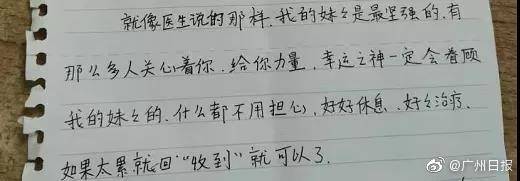 就像医生说的那样,我的妹々是最坚强的.有
那么多人关心着你.给你力量,幸运之神一定会眷顾
我的妹々的.什么都不用担心,好好休息.好々治疗.
如果太累就回“收到”就可以了.
@广州日报